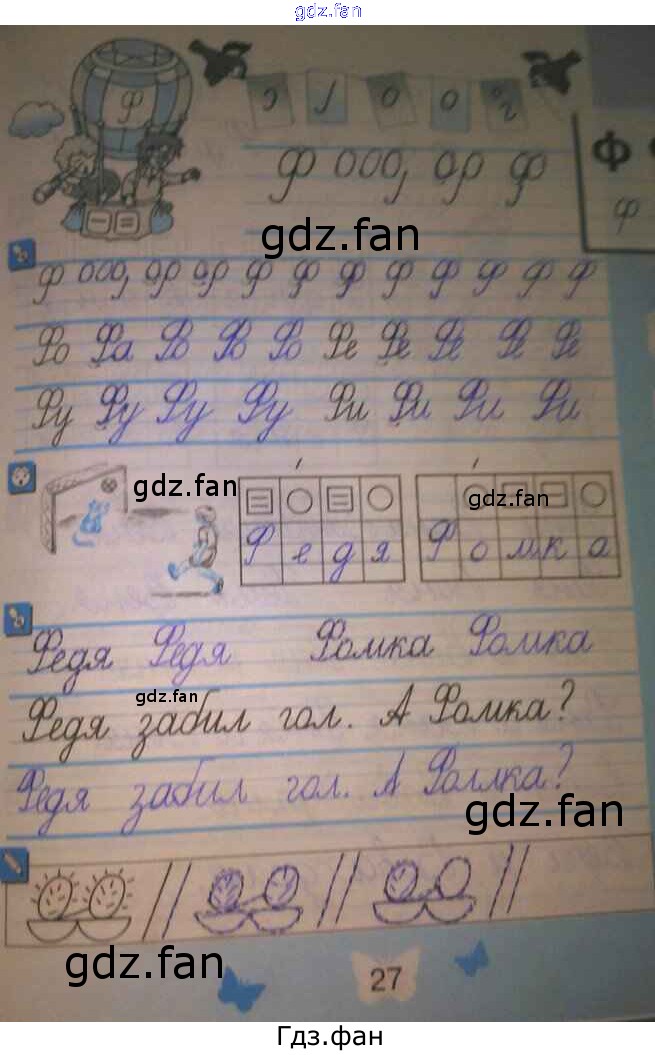 gdz.fan
Ф
с г о о
ф ооо, ор ф
Ф
ф
gdz.fan
ф ооо, ор ор ф ф ф ф ф ф ф ф
Фо Фа Фо Фо Фо Фе Фе Фе Фе Фе
Фу Фу Фу Фу Фи Фи Фи Фи
gdz.fan
gdz.fan
Ф е д я Ф о м к а
Федя Федя Фомка Фомка
gdz.fan
Федя забил гол. А Фомка?
Федя забил гол. А Фомка?
gdz.fan
gdz.fan
27
Гдз.фан